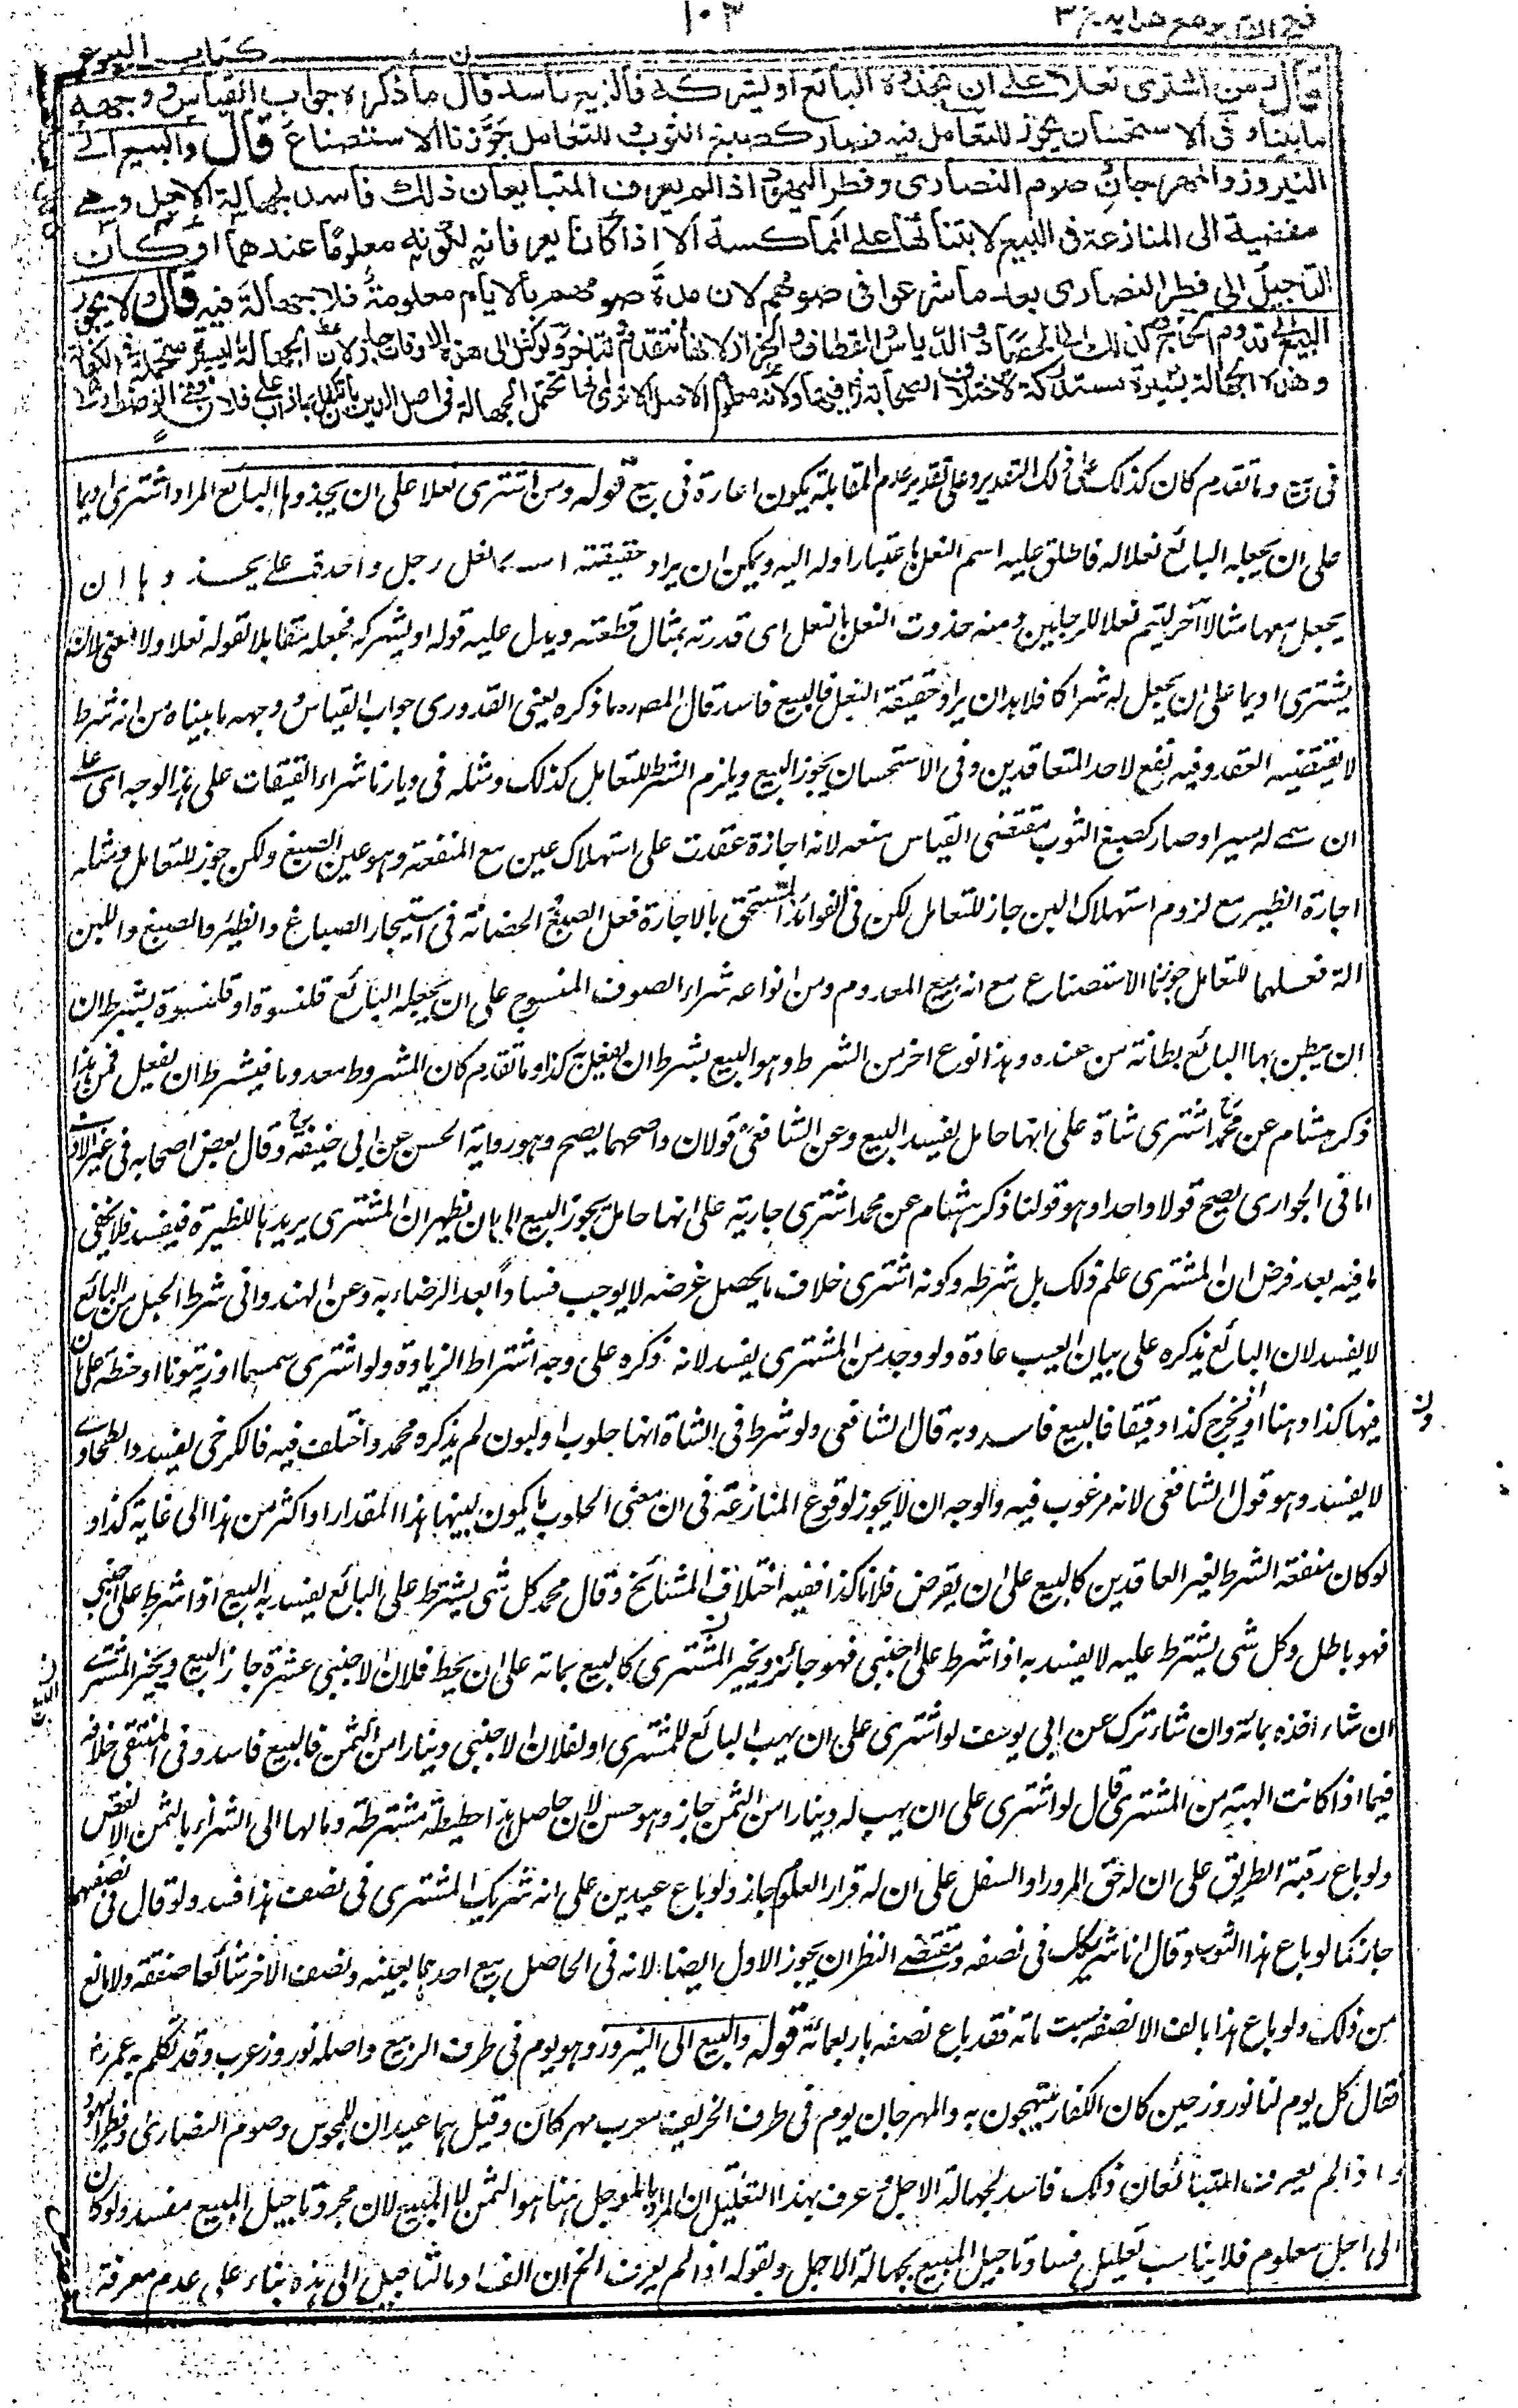 فتح القدير مع هدايه ج ٣
١٠٣
كتاب البيوع
قال ومن اشترى نعلا على ان يحذوه البائع او يشركه فالبيع فاسد قال ما ذكره جواب القياس ووجهه
ما بيناه وفى الاستحسان يجوز للتعامل فيه فصار كصبغ الثوب وللتعامل جوزنا الاستصناع قال والبيع الى
النيروز والمهرجان وصوم النصارى وفطر اليهود اذا لم يعرف المتبايعان ذلك فاسد لجهالة الاجل وهى
مفضية الى المنازعة فى البيع لابتنائها على المماكسة الا اذا كانا يعرفانه لكونه معلوما عندهما او كان
التاجيل الى فطر النصارى بعد ما شرعوا فى صومهم لان مدة صومهم بالايام معلومة فلا جهالة فيه قال ولا يجوز
البيع الى قدوم الحاج وكذلك الى الحصاد والدياس والقطاف والجزاز لانها تتقدم وتتاخر ولو كفل الى هذه الاوقات جاز لان الجهالة اليسيرة متحملة فى الكفالة
وهذه الجهالة يسيرة مستدركة لاختلاف الصحابة رض فيها ولانه معلوم الاصل الا ترى انها تحتمل الجهالة فى اصل الدين بان تكفل بما ذاب على فلان ففى الوصف اولى
وما تقدم كان كذلك على ذلك التقدير وعلى تقدير عدم المقابلة يكون اعارة فى بيع قوله ومن اشترى نعلا على ان يحذوها البائع المراد اشترى اديما
على ان يجعله البائع نعلا له فاطلق عليه اسم النعل باعتبار اوله اليه ويمكن ان يراد حقيقته اى نعل رجل واحدة على ان يحذوها اى ان
يجعل معها مثالا آخر ليتم نعلا للرجلين ومنه حذوت النعل بالنعل اى قدرته بمثال قطعته ويدل عليه قوله او يشركه فجعله مقابلا لقوله نعلا ولا معنى لان
يشترى اديما على ان يجعل له شراكا فلا بد ان يراد حقيقة النعل فالبيع فاسد قال المصره ما ذكره يعنى القدورى جواب القياس ووجهه ما بيناه من انه شرط
لا يقتضيه العقد وفيه نفع لاحد المتعاقدين وفى الاستحسان يجوز البيع ويلزم الشرط للتعامل كذلك ومثله فى ديارنا شراء القبقاب على هذا الوجه اى على
ان يسمر له سيرا وصار كصبغ الثوب مقتضى القياس منعه لانه اجازة عقدت على استهلاك عين مع المنفعة وهو عين الصبغ ولكن جوز للتعامل ومثله
اجارة الظئر مع لزوم استهلاك اللبن جاز للتعامل لكن فى الفوائد المستحق بالاجارة فعل الصبغ والحضانة فى استيجار الصباغ والظئر والصبغ واللبن
آلة فعلهما للتعامل جوزنا الاستصناع مع انه بيع المعدوم ومن انواعه شراء الصوف المنسوج على ان يجعله البائع قلنسوة او قلنسوة بشرط ان
ان يبطن بها البائع بطانة من عنده وهذا نوع اخر من الشرط وهو البيع بشرط ان يفعل كذا وما تقدم كان المشروط معدوما فيشرط ان يفعل فمن هذا
ذكر هشام عن محمد اشترى شاة على انها حامل يفسد البيع وعن الشافعى قولان واصحهما يصح وهو رواية الحسن عن ابى حنيفة وقال بعض اصحابه فى غير الآدمى
اما فى الجوارى يصح قولا واحدا وهو قولنا ذكر هشام عن محمد اشترى جارية على انها حامل يجوز البيع الا ان يظهر ان المشترى يريدها للظئيرة فيفسد فلا يخفى
ما فيه بعد فرض ان المشترى علم ذلك بل شرطه وكونه اشترى خلاف ما يحصل غرضه لا يوجب فسادا بعد الرضاء به وعن الهندوانى شرط الحبل من البائع
لا يفسد لان البائع يذكره على بيان العيب عادة ولو وجد من المشترى يفسد لانه ذكره على وجه اشتراط الزيادة ولو اشترى سمسما او زيتونا او حنطة على ان
فيها كذا دهنا او يخرج كذا دقيقا فالبيع فاسد وبه قال الشافعى ولو شرط فى الشاة انها حلوب او لبون لم يذكره محمد واختلف فيه فالكرخى يفسد والطحاوى
لا يفسد وهو قول الشافعى لانه مرغوب فيه والوجه ان لا يجوز لوقوع المنازعة فى ان معنى الحلوب ما يكون لبنها هذا المقدار او اكثر من هذا الى غاية كذا و
لو كان منفعة الشرط لغير العاقدين كالبيع على ان يقرض فلانا كذا ففيه اختلاف المشائخ وقال محمد كل شى يشترط على البائع يفسد به البيع اذا شرط على اجنبى
فهو باطل وكل شى يشترط عليه لا يفسد به اذا شرط على اجنبى فهو جائز ويخير المشترى كالبيع بمائة على ان يحط فلان الاجنبى عشرة جاز البيع ويخير المشترى
ان شاء اخذه بمائة وان شاء ترك عن ابى يوسف لو اشترى على ان يهب البائع للمشترى او لفلان الاجنبى دينارا من الثمن فالبيع فاسد وفى المنتقى خلافه
فيما اذا كانت الهبة من المشترى قال لو اشترى على ان يهب له دينارا من الثمن جاز وهو حسن لان حاصل هذا حطيطة مشترطة ومآلها الى الشراء بالثمن الانقص
ولو باع رقبة الطريق على ان له حق المرور او السفل على ان له قرار العلو جاز ولو باع عبدين على انه شريك المشترى فى نصف هذا فسد ولو قال فى نصفهما
جاز كما لو باع هذا الثوب وقال انا شريكك فى نصفه ومقتضى النظر ان يجوز الاول ايضا لانه فى الحاصل بيع احدهما بعينه ونصف الاخر شائعا صفقة ولا مانع
من ذلك ولو باع هذا بالف الا نصفه بست مائة فقد باع نصفه باربعمائة قوله والبيع الى النيروز وهو يوم فى طرف الربيع واصله نوروز عرب وقد تكلم به عمر رض
فقال كل يوم لنا نوروز حين كان الكفار يبتهجون به والمهرجان يوم فى طرف الخريف معرب مهركان وقيل هما عيدان للمجوس وصوم النصارى وفطر اليهود
واذا لم يعرف المتبائعان ذلك فاسد لجهالة الاجل وعرف بهذا التعليل ان المراد بالمؤجل هنا هو الثمن لا المبيع لان مجرد تاجيل المبيع مفسد ولو كان
الى اجل معلوم فلا يناسب تعليل فساد تاجيل المبيع بجهالة الاجل وبقوله اذا لم يعرف الخ ان الفساد بالتاجيل الى هذه بناء على عدم معرفة